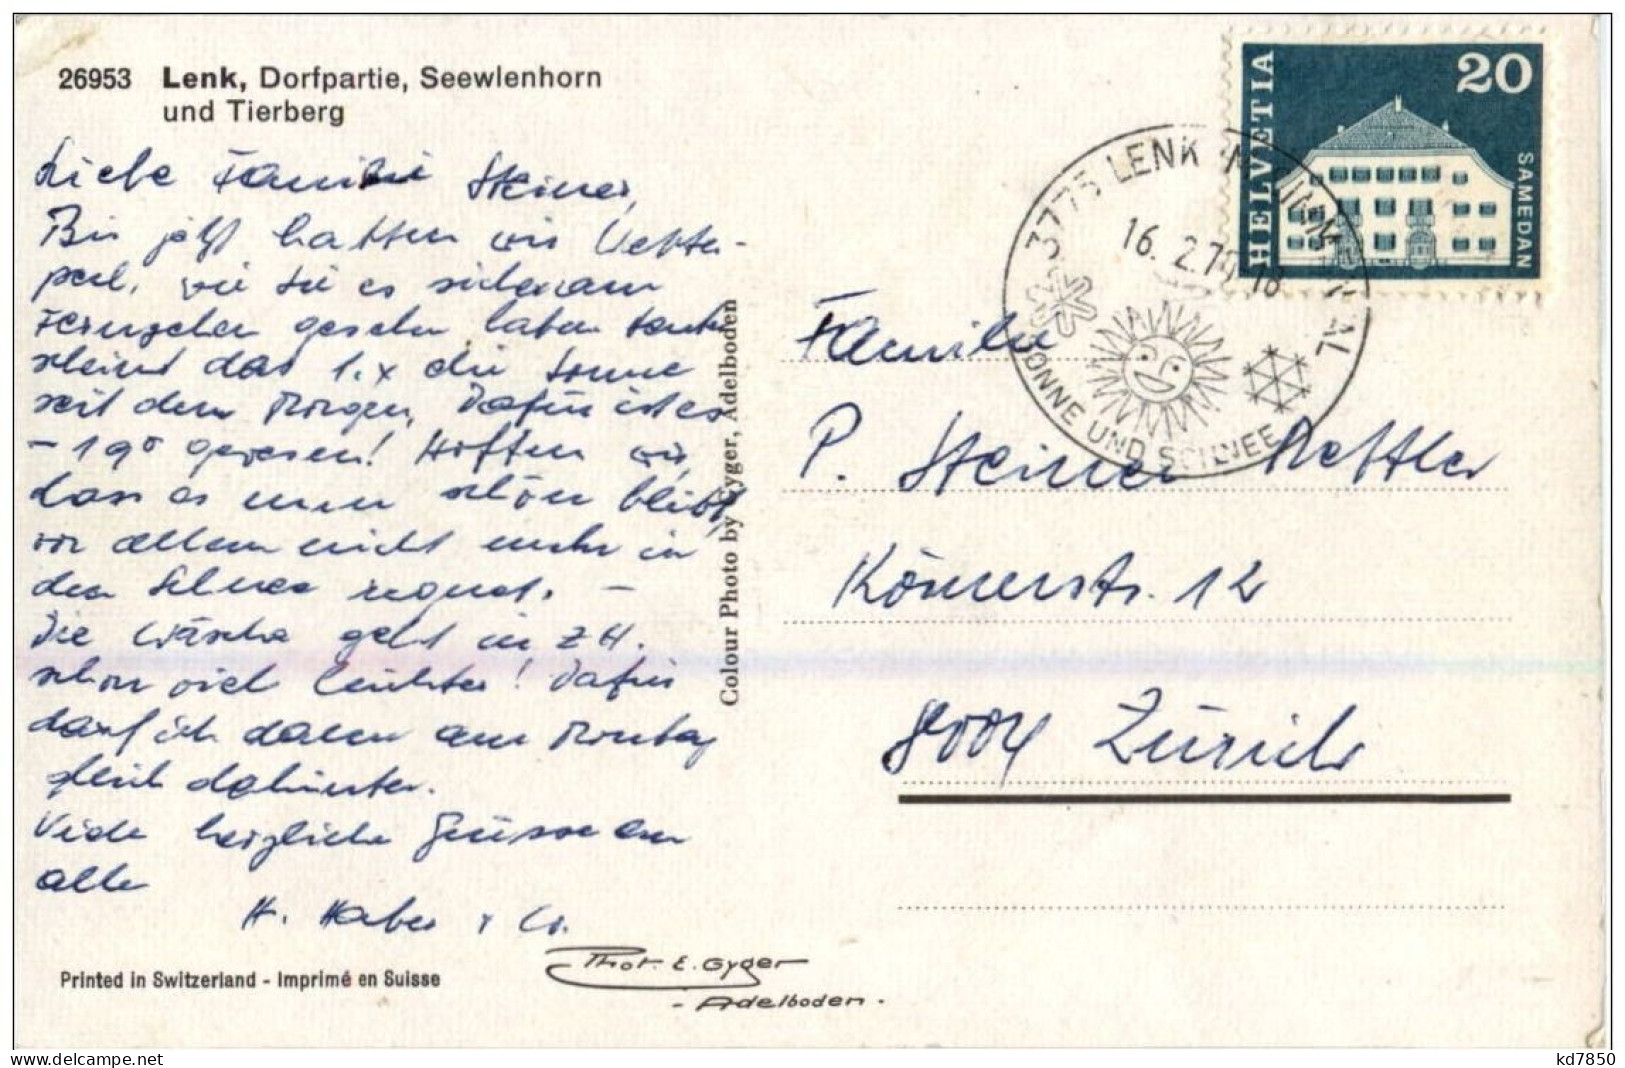 26953 Lenk, Dorfpartie, Seewlenhorn
und Tierberg
Liebe Familie Steiner,
Bis jetzt hatten wir Wetter-
pech, wie Sie es sicher am
Fernsehen gesehen haben. Heute
scheint das 1.x die Sonne
seit dem Morgen, Dafür ist es
- 19° gewesen! Hoffen wir,
dass es nun schön bleibt,
vor allem nicht mehr in
den Schnee regnet. -
Die Wäsche geht in ZH.
schon viel leichter! Dafür
darf ich dann am Montag
gleich dahinter.
Viele herzliche Grüsse an
alle
H. Haber + Co.
Printed in Switzerland - Imprimé en Suisse
Phot. E. Gyger
- Adelboden -
Colour Photo by Gyger, Adelboden
HELVETIA
20
SAMEDAN
3775 LENK IM SIMMENTAL
16. 2. 18
SONNE UND SCHNEE
Familie
P. Steiner Mettler
Körnerstr. 12
8004 Zürich
kd7850